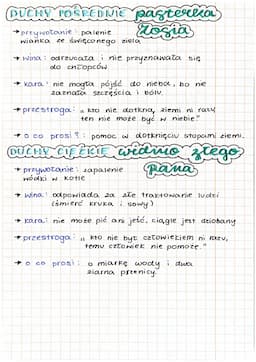 DUCHY POŚREDNIE pasterka Zosia
→ przywołanie: palenie
wianka ze święconego ziela
→ wina: odrzucała i nie przyznawała się
do chłopców
→ kara: nie mogła pójść do nieba, bo nie
zaznała szczęścia i bólu
→ przestroga: „kto nie dotknął ziemi ni razu
ten nie może być w niebie"
→ o co prosi?: pomoc w dotknięciu stopami ziemi.
DUCHY CIĘŻKIE widmo złego pana
→ przywołanie: zapalenie
wódki w kotle
→ wina: odpowiada za złe traktowanie ludzi
(śmierć kruka i sowy)
→ kara: nie może pić ani jeść, ciągle jest dziobany
→ przestroga: „kto nie był człowiekiem ni razu,
temu człowiek nie pomoże."
→ o co prosi: o miarkę wody i dwa
ziarna pszenicy.